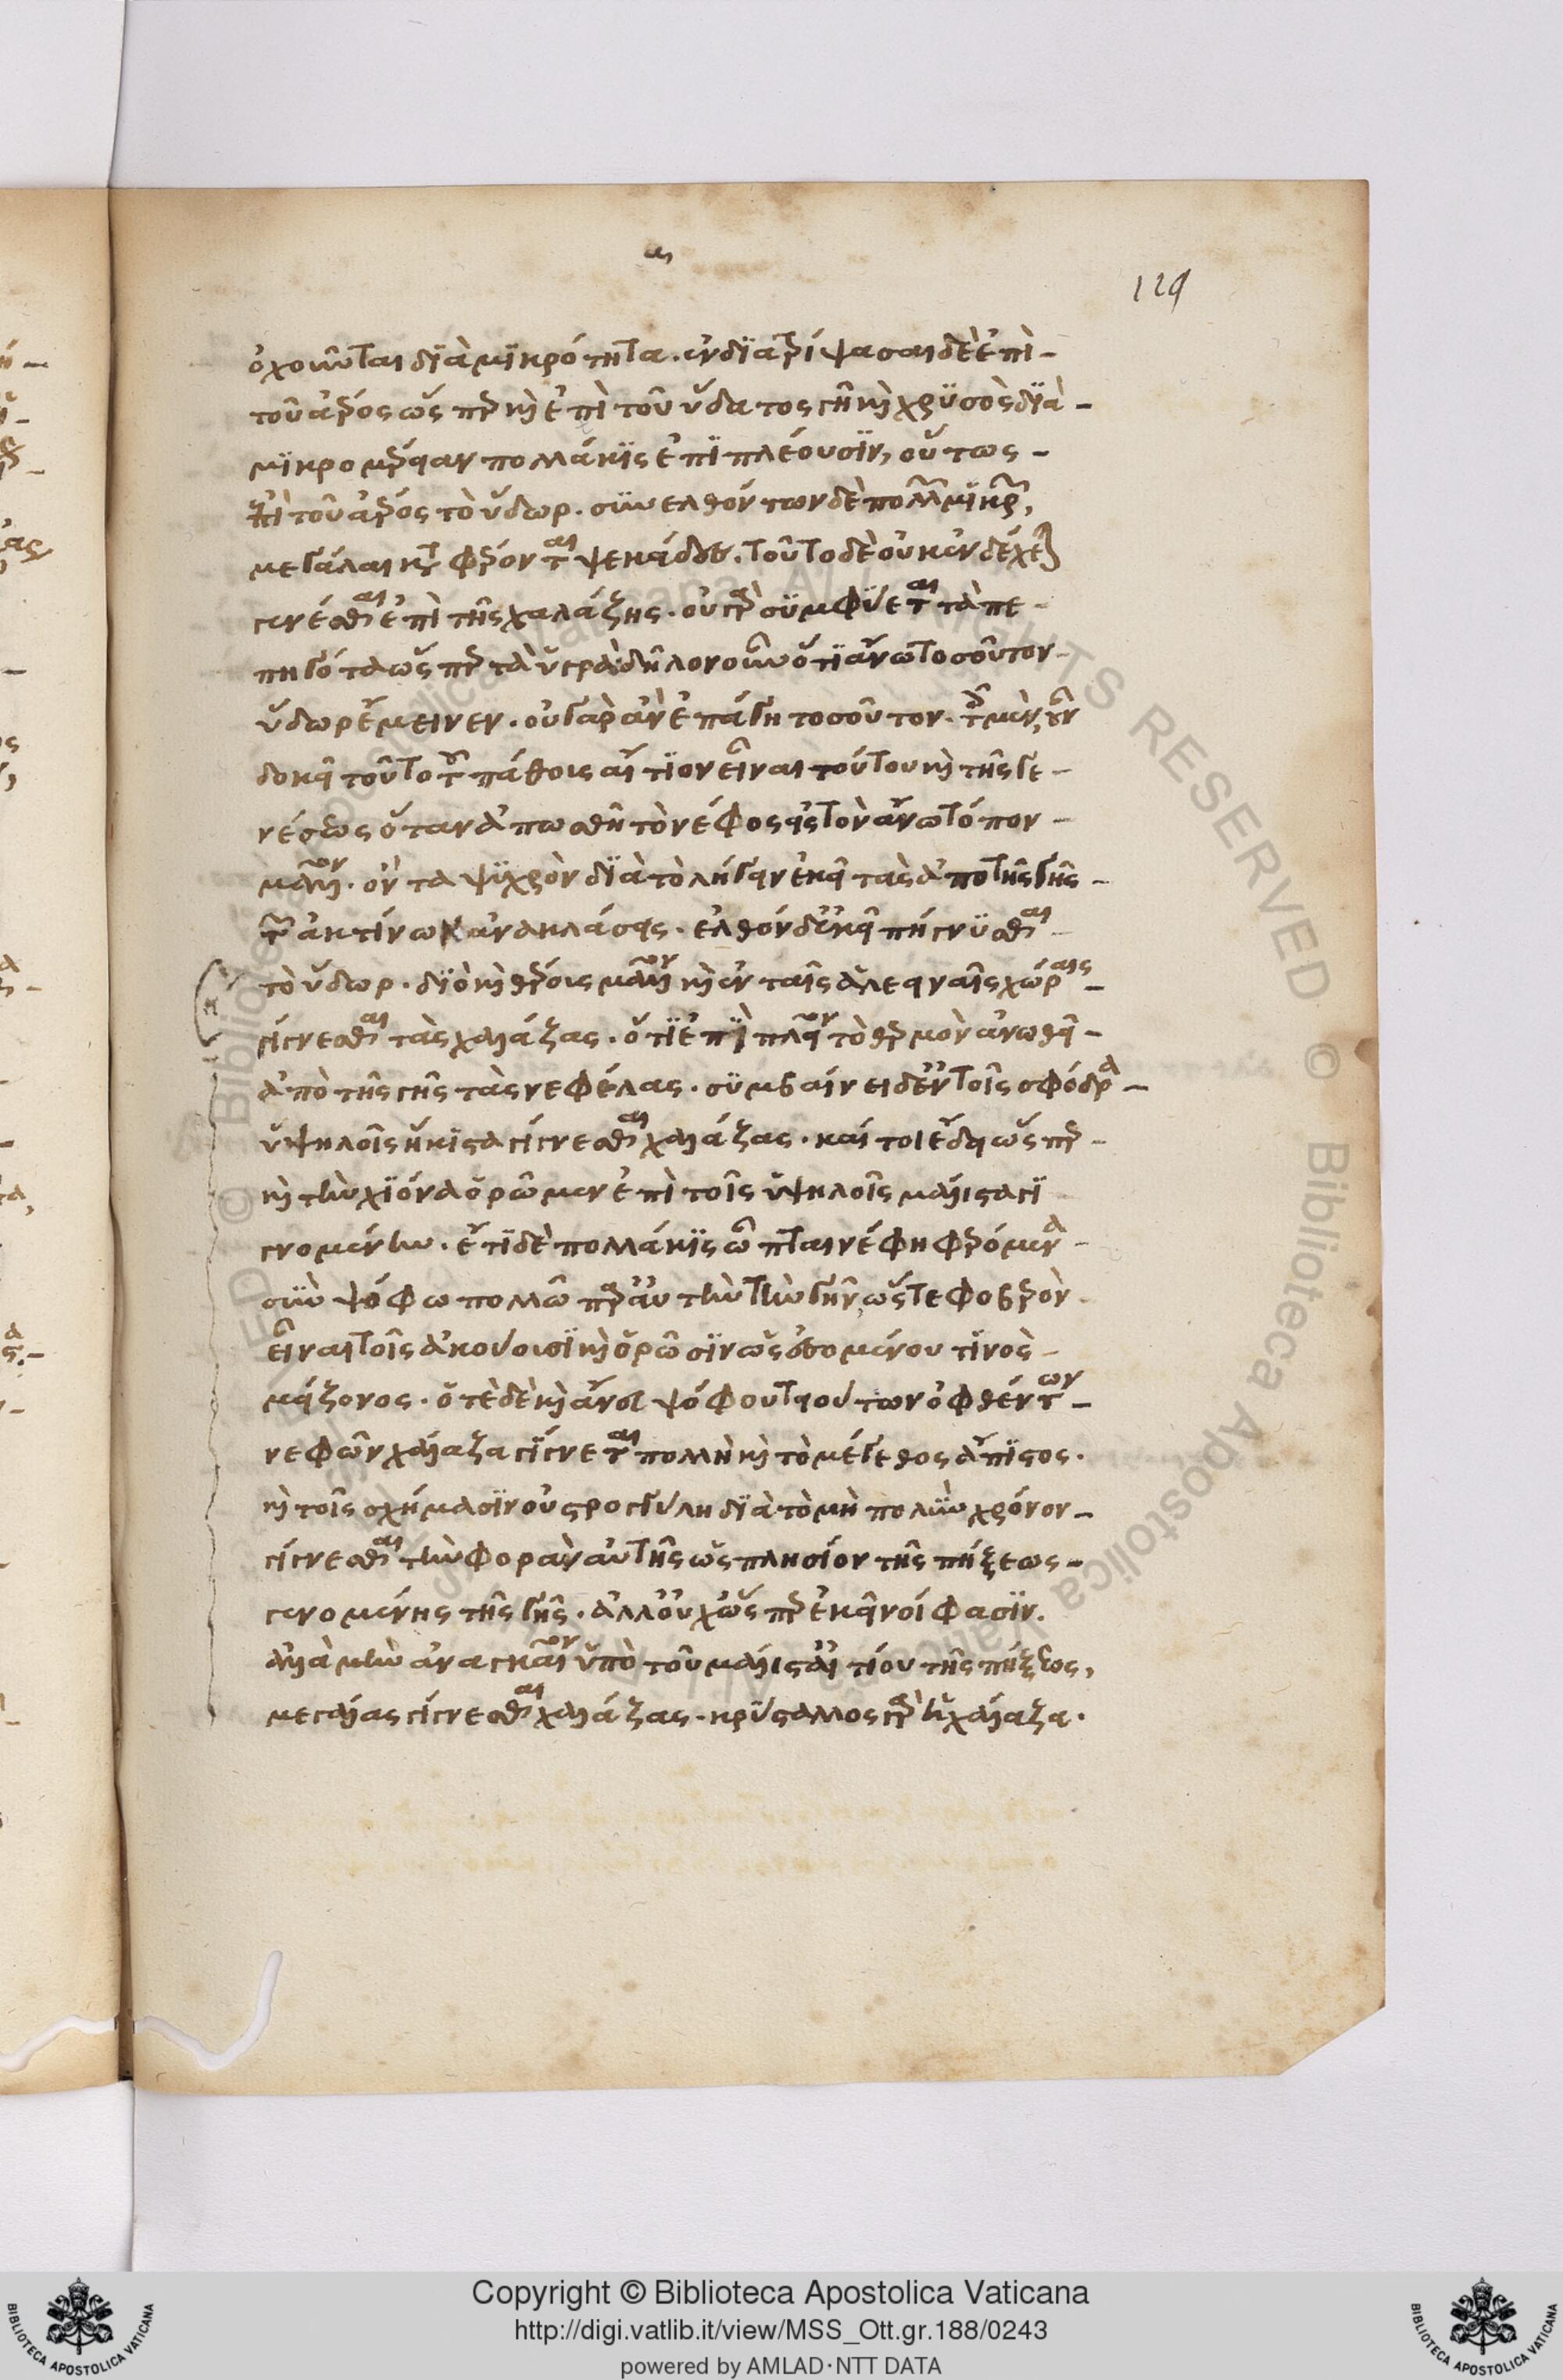 α,
129
ὀχοῦνται διὰ μικρότητα. ἐνδιατρίψασαι δὲ ἐπὶ
τοῦ ἀέρος ὥσπερ καὶ ἐπὶ τοῦ ὕδατος γῆ καὶ χρυσὸς διὰ
μικρομέρειαν πολλάκις ἐπιπλέουσιν, οὕτως
ἐπὶ τοῦ ἀέρος τὸ ὕδωρ. συνελθόντων δὲ πολλῶν μικρῶν,
μεγάλαι καταφέρονται ψεκάδες. τοῦτο δὲ οὐκ ἐνδέχεται
γενέσθαι ἐπὶ τῆς χαλάζης. οὐ γὰρ συμφύεται τὰ πε
πηγότα ὥσπερ τὰ ὑγρά. δῆλον οὖν ὅτι ἄνω τοσοῦτον
ὕδωρ ἔμεινεν. οὐ γὰρ ἂν ἐπάγη τοσοῦτον. τοῖς μὲν οὖν
δοκεῖ τοῦτο τοῦ πάθους αἴτιον εἶναι τούτου καὶ τῆς γε
νέσεως ὅταν ἀπωσθῇ τὸ νέφος εἰς τὸν ἄνω τόπον
μᾶλλον ὄντα ψυχρὸν διὰ τὸ λήγειν ἐκεῖ τὰς ἀπὸ τῆς γῆς
τῶν ἀκτίνων ἀνακλάσεις. ἐλθὸν δ' ἐκεῖ πήγνυσθαι
τὸ ὕδωρ. διὸ καὶ θέρους μᾶλλον καὶ ἐν ταῖς ἀλεειναῖς χώραις
γίγνεσθαι τὰς χαλάζας. ὅτι ἐπὶ πλεῖον τὸ θερμὸν ἀνωθεῖ
ἀπὸ τῆς γῆς τὰς νεφέλας. συμβαίνει δ' ἐν τοῖς σφόδρα
ὑψηλοῖς ἥκιστα γίγνεσθαι χαλάζας. καίτοι ἔδει ὥσπερ
καὶ τὴν χιόνα ὁρῶμεν ἐπὶ τοῖς ὑψηλοῖς μάλιστα γι
γνομένην. ἔτι δὲ πολλάκις ὦπται νέφη φερόμενα
σὺν ψόφῳ πολλῷ παρ' αὐτὴν τὴν γῆν, ὥστε φοβερὸν
εἶναι τοῖς ἀκούουσι καὶ ὁρῶσιν ὡς ἐσομένου τινὸς
μείζονος. ὁτὲ δὲ καὶ ἄνευ ψόφου τοιούτων ὀφθέντων
νεφῶν χάλαζα γίγνεται πολλὴ καὶ τὸ μέγεθος ἄπιστος.
καὶ τοῖς σχήμασιν οὐ στρογγύλη διὰ τὸ μὴ πολὺν χρόνον
γίγνεσθαι τὴν φορὰν αὐτῆς ὡς πλησίον τῆς πήξεως
γενομένης τῆς γῆς. ἀλλ' οὐχ ὥσπερ ἐκεῖνοί φασιν.
ἀλλὰ μὴν ἀναγκαῖον ὑπὸ τοῦ μάλιστ' αἰτίου τῆς πήξεως,
μεγάλας γίγνεσθαι χαλάζας. κρύσταλλος γὰρ ἡ χάλαζα.